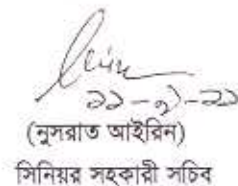 ২২-৭-২২
(নুসরাত আইরিন)
সিনিয়র সহকারী সচিব